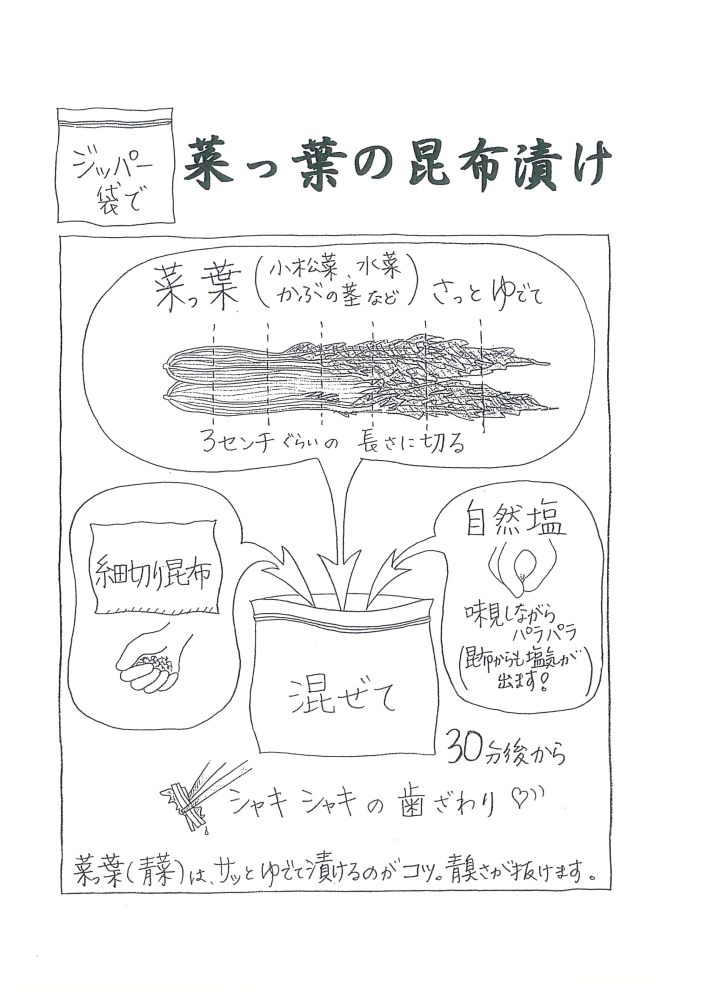 ジッパー
袋で
菜っ葉の昆布漬け
菜っ葉(小松菜、水菜
かぶの茎など)さっとゆでて
3センチぐらいの 長さに切る
細切り昆布
自然塩
味見しながら
パラパラ
(昆布からも塩気が
出ます!)
混ぜて
30分後から
シャキシャキの歯ざわり♡
菜っ葉(青菜)は、サッとゆでて漬けるのがコツ。青臭さが抜けます。